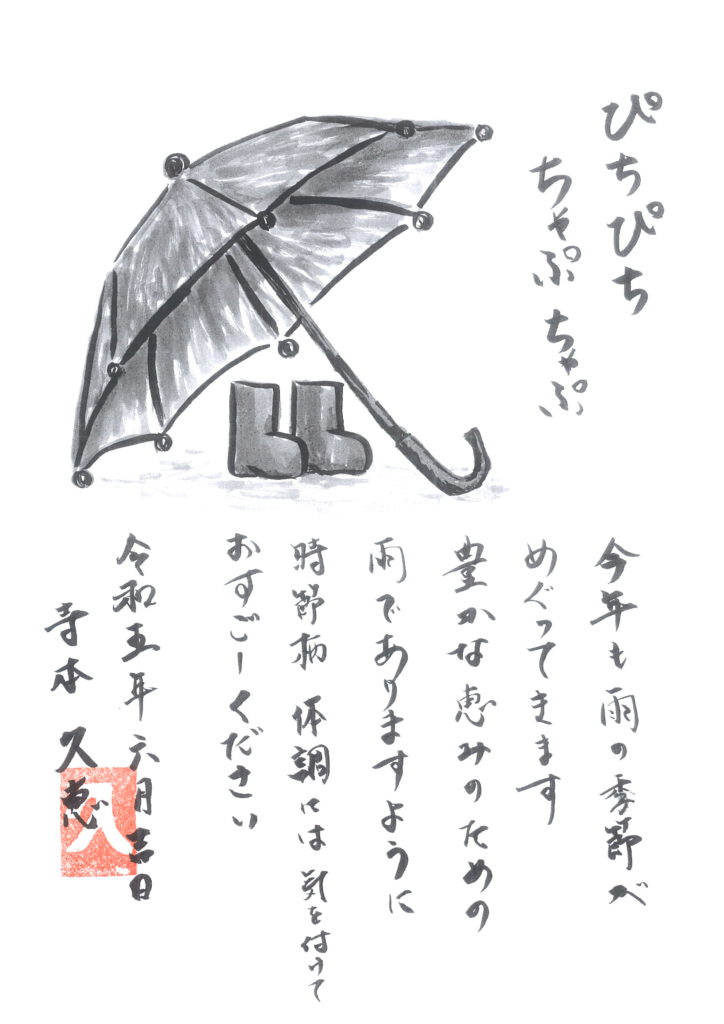 ぴちぴち
ちゃぷ ちゃぷ
今年も雨の季節が
めぐってきます
豊かな恵みのための
雨でありますように
時節柄 体調には気を付けて
おすごしください
令和五年六月吉日
寺本 久恵